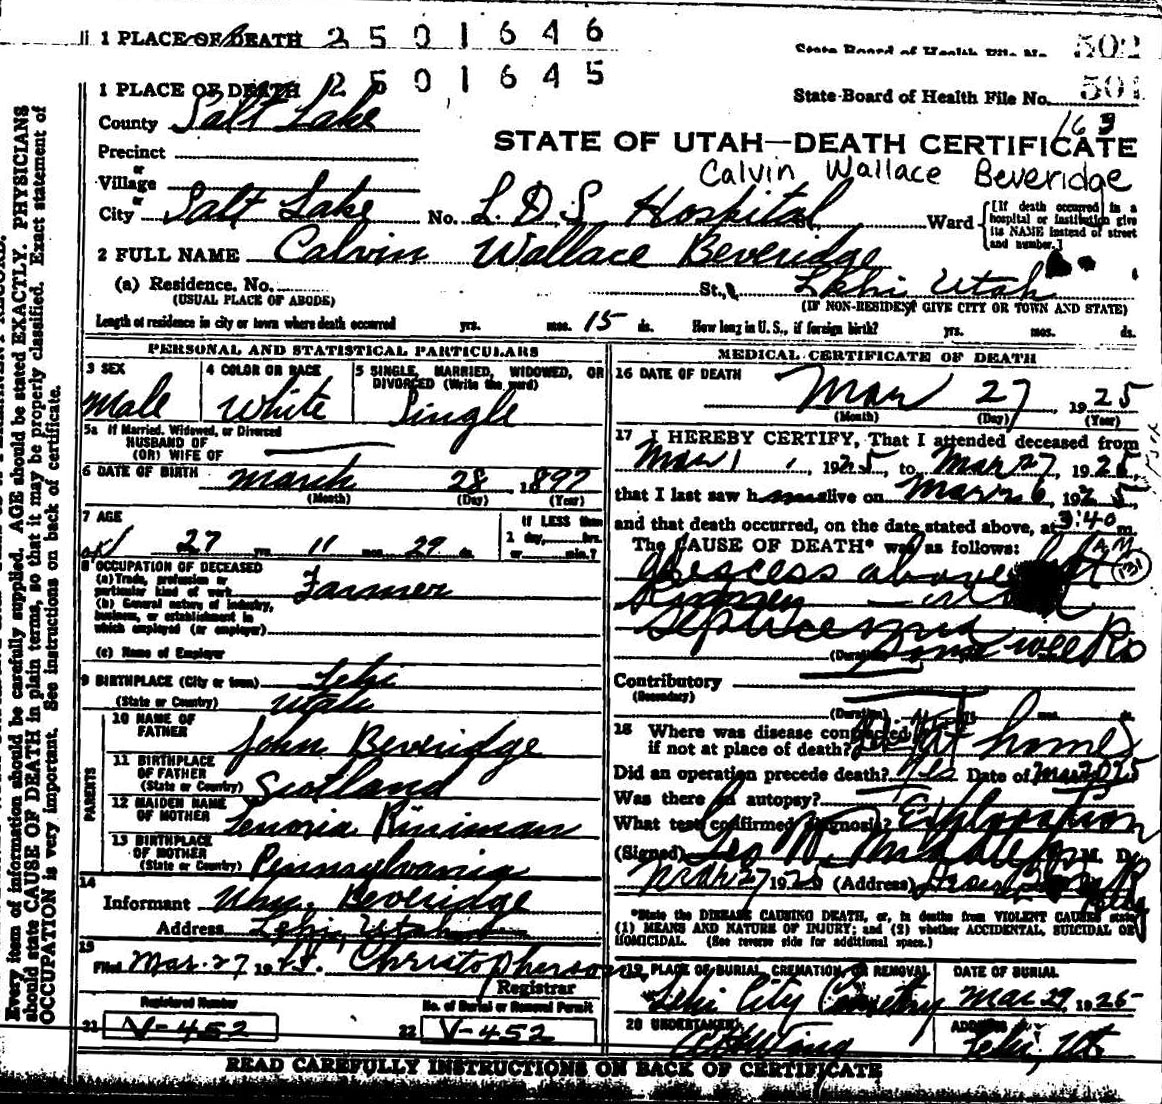 1 PLACE OF DEATH 2501646
State Board of Health File No. 502
1 PLACE OF DEATH 2501645
State Board of Health File No. 501
163
County Salt Lake
STATE OF UTAH—DEATH CERTIFICATE
Calvin Wallace Beveridge
Precinct
or
Village
or
City Salt Lake No. L.D.S. Hospital Ward
[If death occurred in a
hospital or institution give
its NAME instead of street
and number.]
2 FULL NAME Calvin Wallace Beveridge
(a) Residence. No. St., Lehi Utah
(USUAL PLACE OF ABODE) (IF NON-RESIDENT GIVE CITY OR TOWN AND STATE)
Length of residence in city or town where death occurred yrs. mos. 15 ds. How long in U. S., if foreign birth? yrs. mos. ds.
PERSONAL AND STATISTICAL PARTICULARS
3 SEX
Male
4 COLOR OR RACE
White
5 SINGLE, MARRIED, WIDOWED, OR
DIVORCED (Write the word)
Single
5a If Married, Widowed, or Divorced
HUSBAND OF
(OR) WIFE OF
6 DATE OF BIRTH March 28 1897
(Month) (Day) (Year)
7 AGE
27 yrs. 11 mos. 29 ds.
If LESS than
1 day, hrs.
or min.?
8 OCCUPATION OF DECEASED
(a) Trade, profession or
particular kind of work Farmer
(b) General nature of industry,
business, or establishment in
which employed (or employer)
(c) Name of Employer
9 BIRTHPLACE (City or town) Lehi
(State or Country) Utah
PARENTS
10 NAME OF
FATHER John Beveridge
11 BIRTHPLACE
OF FATHER
(State or Country) Scotland
12 MAIDEN NAME
OF MOTHER Lenoria
13 BIRTHPLACE
OF MOTHER
(State or Country) Pennsylvania
14
Informant Wm. Beveridge
Address Lehi, Utah
15
Filed Mar. 27 1925. Christopherson
Registrar
Registered Number
21 V-452
No. of Burial or Removal Permit
22 V-452
MEDICAL CERTIFICATE OF DEATH
16 DATE OF DEATH
Mar 27, 1925
(Month) (Day) (Year)
17 I HEREBY CERTIFY, That I attended deceased from
Mar 1, 1925, to Mar 27, 1925,
that I last saw him alive on Mar 26, 1925,
and that death occurred, on the date stated above, at 3:40 m.
AM
The CAUSE OF DEATH* was as follows:
Abscess above left
131
Kidney
Septicemia
(Duration) weeks
Contributory
(Secondary)
(Duration) yrs. mos. ds.
18 Where was disease contracted
if not at place of death? At home
Did an operation precede death? Yes Date of Mar 20 25
Was there an autopsy?
What test confirmed diagnosis? Exploration
(Signed) Geo W. Middleton M. D.
Mar 27 1925 (Address)
*State the DISEASE CAUSING DEATH, or, in deaths from VIOLENT CAUSES state
(1) MEANS AND NATURE OF INJURY; and (2) whether ACCIDENTAL, SUICIDAL OR
HOMICIDAL. (See reverse side for additional space.)
19 PLACE OF BURIAL, CREMATION OR REMOVAL
Lehi City Cemetery
DATE OF BURIAL
Mar 29, 1925
20 UNDERTAKER
Wing
ADDRESS
Lehi, Ut.
READ CAREFULLY INSTRUCTIONS ON BACK OF CERTIFICATE
Every item of information should be carefully supplied. AGE should be stated EXACTLY. PHYSICIANS
should state CAUSE OF DEATH in plain terms, so that it may be properly classified. Exact statement of
OCCUPATION is very important. See instructions on back of certificate.